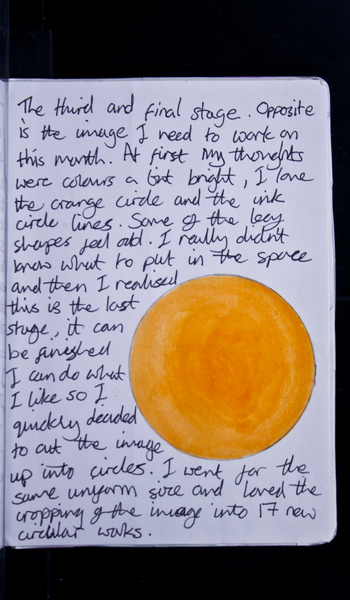 The third and final stage. Opposite
is the image I need to work on
this month. At first my thoughts
were colours a bit bright, I love
the orange circle and the ink
circle lines. Some of the
shapes feel odd. I really didn't
know what to put in the space
and then I realised
this is the last
stage, it can
be finished
I can do what
I like so I
quickly decided
to cut the image
up into circles. I went for the
same uniform size and loved the
cropping of the image into 17 new
circular works.